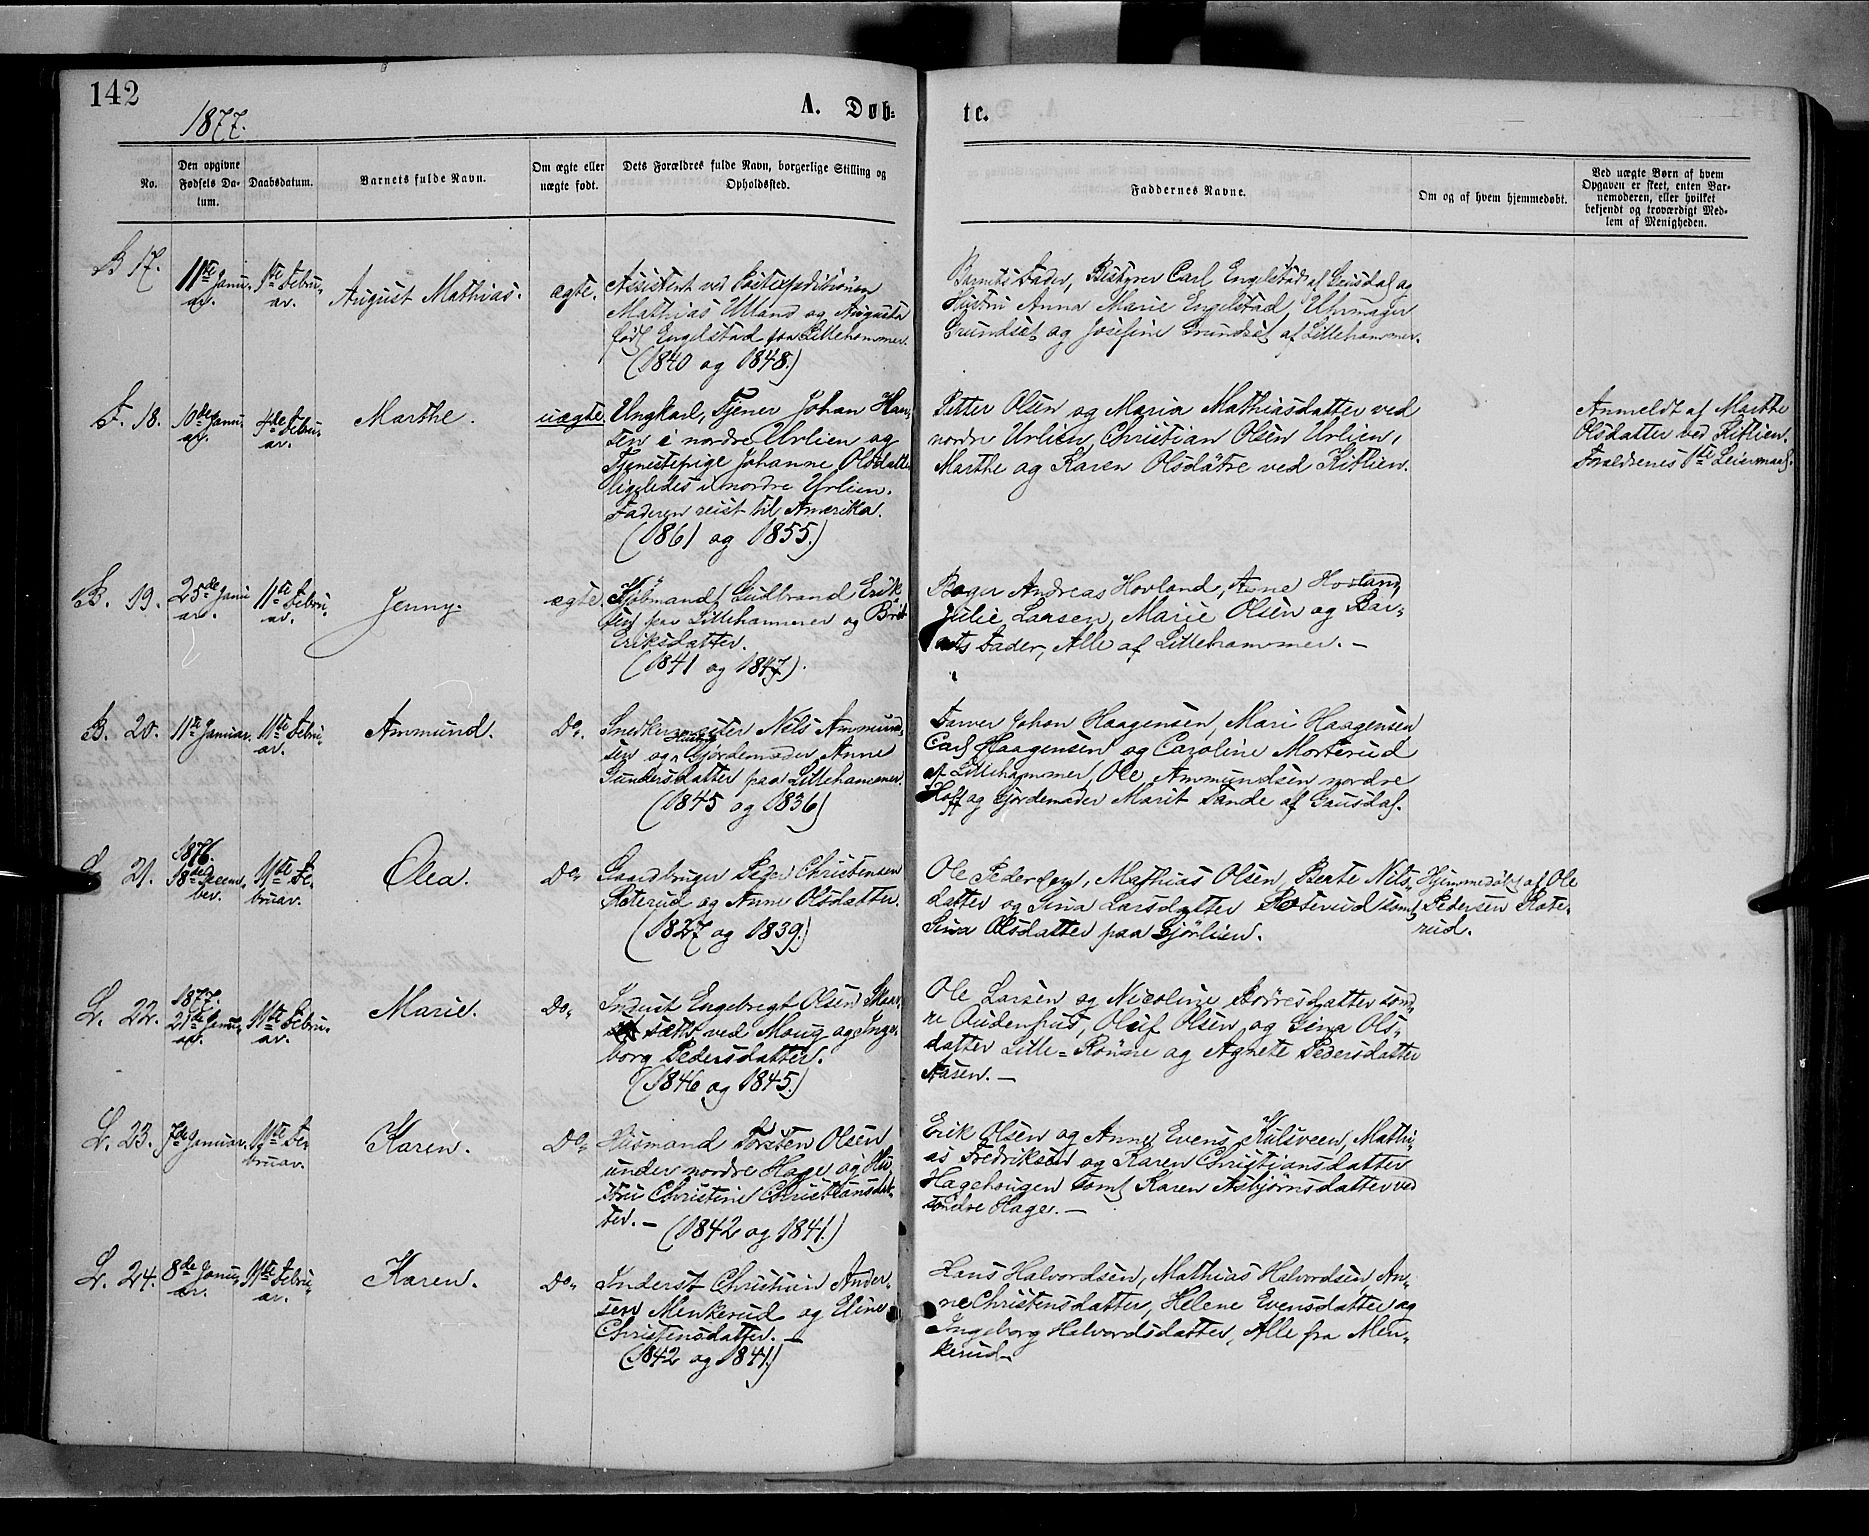 142
1877.
A. Døb-
te.
No.
Den opgivne
Fødsels Da-
tum.
Daabsdatum.
Barnets fulde Navn.
Om ægte eller
uægte født.
Dets Forældres fulde Navn, borgerlige Stilling og
Opholdssted.
Faddernes Navne.
Om og af hvem hjemmedøbt.
Ved uægte Børn af hvem
Opgaven er skeet, enten Bar-
nemoderen, eller hvilket
bekjendt og troværdigt Med-
lem af Menigheden.
B 17.
11te Janu-
ar.
1ste Febru-
ar.
August Mathias.
ægte.
Assistent ved Postexpeditionen
Mathias Ulland og Augusta
født Engelstad paa Lillehammer.
(1840 og 1848.)
Barnets Fader, Bestyrer Carl Engelstad af Gausdal og
Hustru Anna Marie Engelstad, Uhrmager
Grundset og Josefine Grundset af Lillehammer.
F. 18.
10de Janu-
ar.
4de Febru-
ar.
Marthe.
uægte
Ungkarl, Tjener Johan Han-
sen i nordre Urlien og
Tjenestepige Johanne Olsdatter
ligeledes i nordre Urlien.
Faderen reist til Amerika.
(1861 og 1855.)
Petter Olsen og Maria Mathiasdatter ved
nordre Urlien, Christian Olsen Urlien,
Marthe og Karen Olsdatre ved Kitlien.
Anmeldt af Marthe
Olsdatter ved Kitlien.
Forældrenes 1ste Leiermaal.
B. 19.
25de Janu-
ar.
11te Febru-
ar.
Jenny.
ægte.
Kjøbmand Gudbrand Erik-
sen paa Lillehammer og Brit
Eriksdatter.
(1841 og 1847).
Bager Andreas Hovland, Anne Hovland,
Julie Larsen, Marie Olsen og Bar-
nets Fader, Alle af Lillehammer. –
B. 20.
11te Januar.
11te Febru-
ar.
Ammund.
Do.
Snedkermester Nils Ammund-
sen og Hustru Gjordemoder Anne
Gundersdatter paa Lillehammer.
(1845 og 1836)
Farver Johan Haagensen, Mari Haagensen
Carl Haagensen og Caroline Morterud
af Lillehammer, Ole Ammundsen nordre
Hoff og Gjordemoder Marit Tande af Gausdal.
L. 21.
1876.
18de Decem-
ber.
11te Fe-
bruar.
Olea.
Do.
Gaardbruger Peder Christensen
Roterud og Anne Olsdatter.
(1827 og 1839.)
Ole Pedersen, Mathias Olsen, Berte Nils-
datter og Sina Larsdatter Roterud samt
Sina Olsdatter paa Gjørlien.
Hjemmedøbt af Ole
Pedersen Rote-
rud.
L. 22.
1877.
21de Janu-
ar.
11te Febru-
ar.
Marie.
Do.
Inderst Engebregt Olsen
sætt ved Moug og Inge-
borg Pedersdatter.
(1846 og 1845.)
Ole Larsen og Nicoline Børresdatter sønd-
re Audenhus, Oluf Olsen og Gina Ols-
datter Lille-Rønne og Agnete Pedersdatter
Aasen. –
L. 23.
7de Januar.
11te Fe-
bruar.
Karen.
Do.
Husmand Torsten Olsen
under nordre Hage og Hu-
stru Christine Christiansdat-
ter. – (1842 og 1841.)
Erik Olsen og Anne Evens Kulsveen, Mathi-
as Fredriksen og Karen Christiansdatter
Hagehaugen samt Karen Asbjørnsdatter ved
søndre Hage. –
L. 24.
8de Janu-
ar.
11te Febru-
ar.
Karen.
Do.
Inderst Christian Ander-
sen Menkerud og Eline
Christensdatter. –
(1842 og 1841.)
Hans Halvordsen, Mathias Halvordsen, An-
ne Christensdatter, Helene Evensdatter og
Ingeborg Halvordsdatter, Alle fra Men-
kerud –